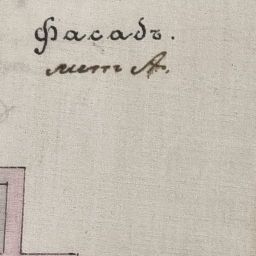 Фасадъ.
лит А.